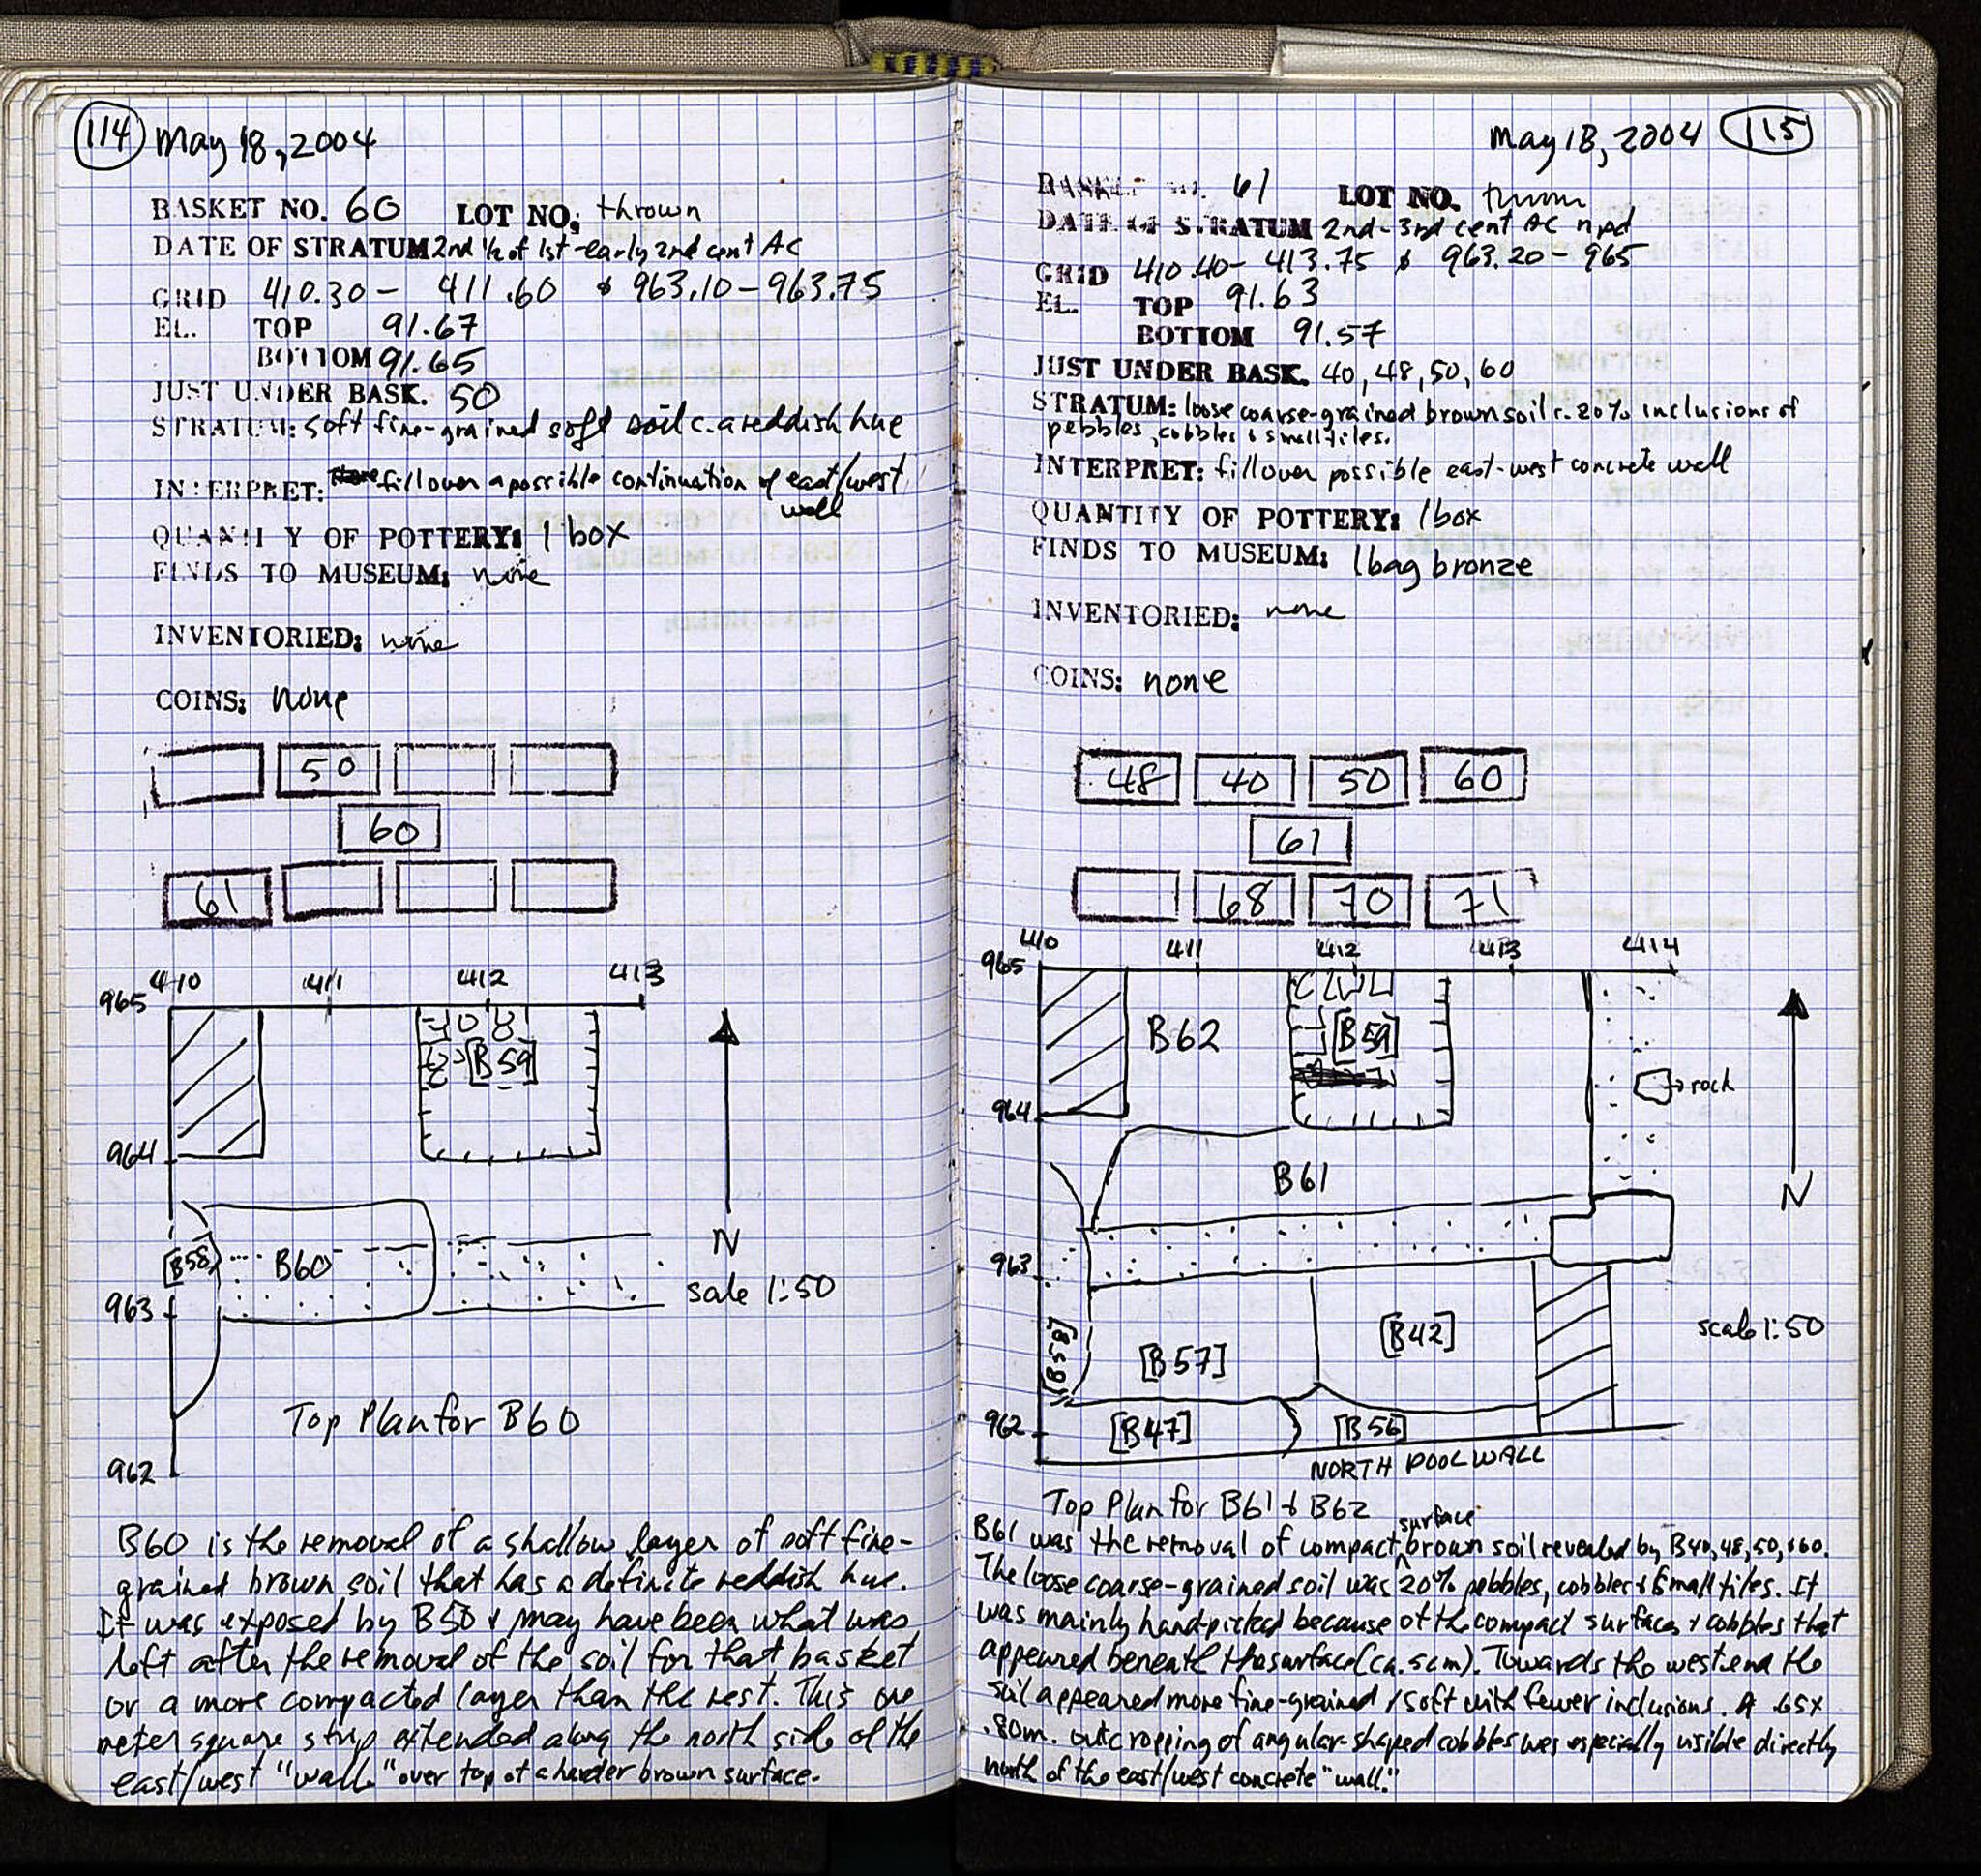 114 May 18, 2004
BASKET NO. 60 LOT NO: thrown
DATE OF STRATUM 2nd ½ of 1st - early 2nd cent AC
GRID 410.30 - 411.60 & 963.10 - 963.75
EL. TOP 91.67
BOTTOM 91.65
JUST UNDER BASK. 50
STRATUM: soft fine-grained soft soil c. a reddish hue
INTERPRET: fill over a possible continuation of east/west
wall
QUANTITY OF POTTERY: 1 box
FINDS TO MUSEUM: none
INVENTORIED: none
COINS: none
50
60
61
410 411 412 413
965
[B59]
964
[B58] B60
963
N
scale 1:50
Top Plan for B60
962
B60 is the removal of a shallow layer of soft fine-
grained brown soil that has a definite reddish hue.
It was exposed by B50 & may have been what was
left after the removal of the soil for that basket
or a more compacted layer than the rest. This one
meter square strip extended along the north side of the
east/west "wall" over top of a harder brown surface.
May 18, 2004 115
BASKET NO. 61 LOT NO. thrown
DATE OF STRATUM 2nd - 3rd cent AC npd
GRID 410.40 - 413.75 & 963.20 - 965
EL. TOP 91.63
BOTTOM 91.57
JUST UNDER BASK. 40, 48, 50, 60
STRATUM: loose coarse-grained brown soil c. 20% inclusions of
pebbles, cobbles & small tiles.
INTERPRET: fill over possible east-west concrete wall
QUANTITY OF POTTERY: 1 box
FINDS TO MUSEUM: 1 bag bronze
INVENTORIED: none
COINS: none
48 40 50 60
61
68 70 71
410 411 412 413 414
965
B62 [B59]
rock
964
B61
N
963
scale 1:50
[B58] [B57] [B42]
962
[B47] [B56]
NORTH POOL WALL
Top Plan for B61 & B62
B61 was the removal of compact surface brown soil revealed by B40, 48, 50, & 60.
The loose coarse-grained soil was 20% pebbles, cobbles & small tiles. It
was mainly handpicked because of the compact surface & cobbles that
appeared beneath the surface (ca. 5cm). Towards the west end the
soil appeared more fine-grained / soft with fewer inclusions. A .65 x
.80m. outcropping of angular-shaped cobbles was especially visible directly
north of the east/west concrete "wall."